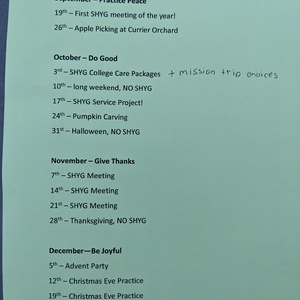 September – Practice Peace
19th – First SHYG meeting of the year!
26th – Apple Picking at Currier Orchard
October – Do Good
3rd – SHYG College Care Packages + mission trip choices
10th – long weekend, NO SHYG
17th – SHYG Service Project!
24th – Pumpkin Carving
31st – Halloween, NO SHYG
November – Give Thanks
7th – SHYG Meeting
14th – SHYG Meeting
21st – SHYG Meeting
28th – Thanksgiving, NO SHYG
December—Be Joyful
5th – Advent Party
12th – Christmas Eve Practice
19th – Christmas Eve Practice